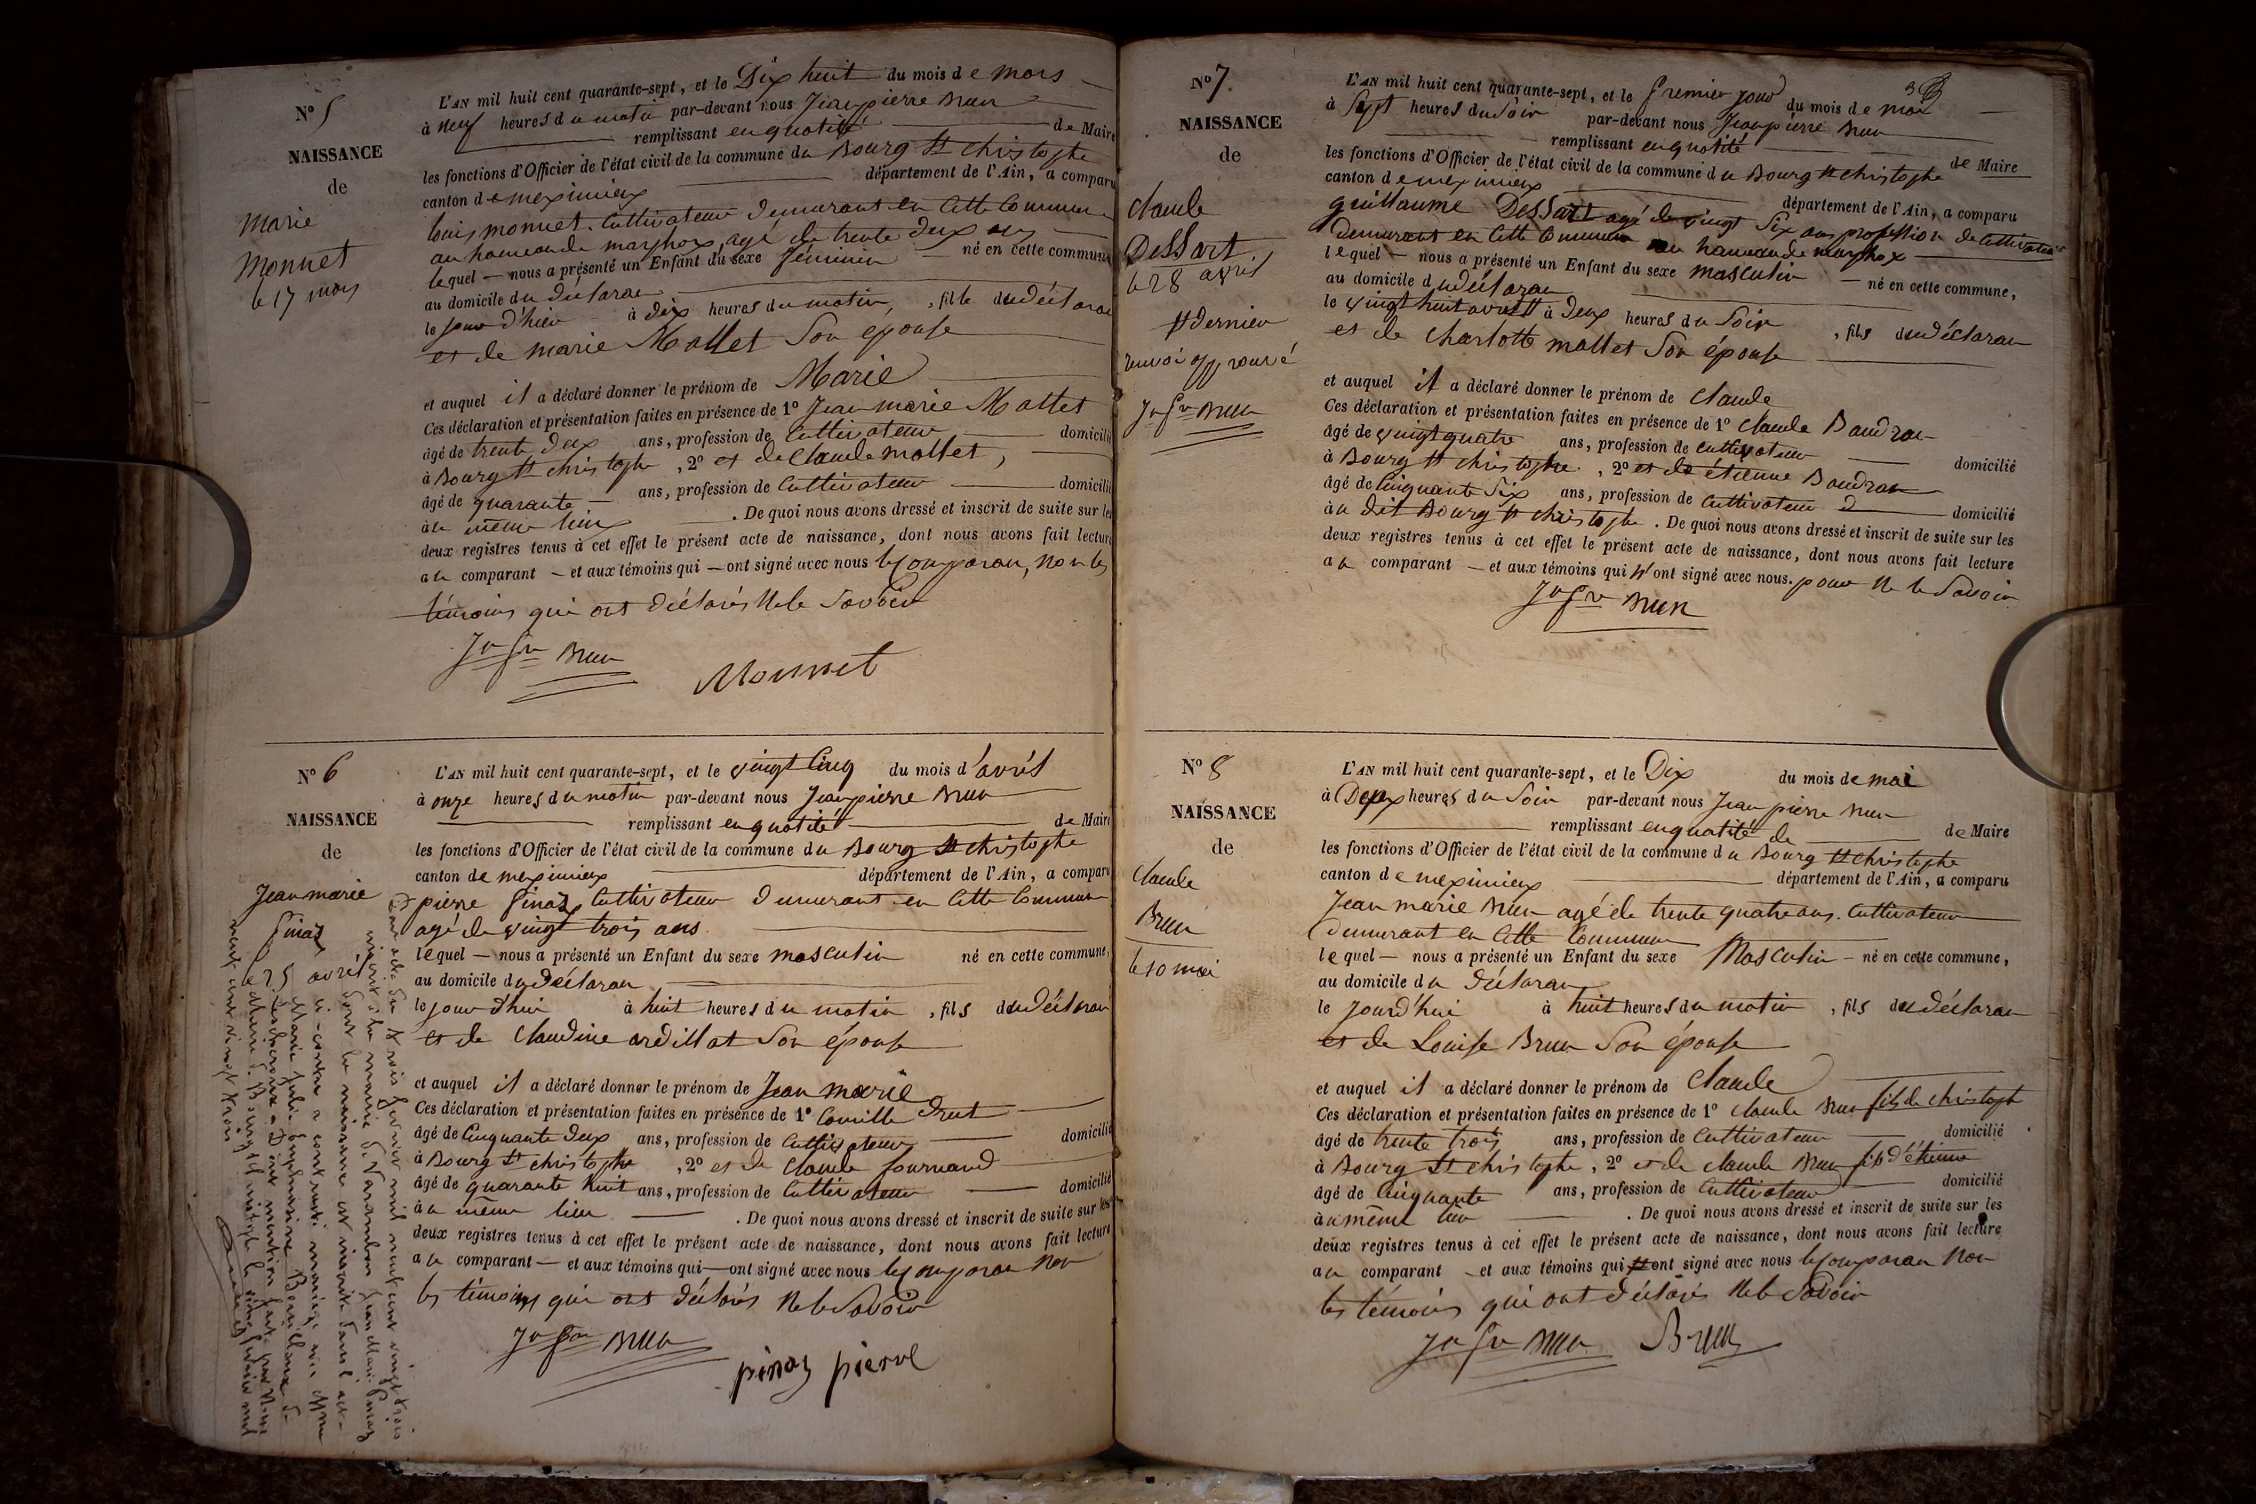 N° 5
NAISSANCE
de
Marie
Monnet
le 17 mars
L'AN mil huit cent quarante-sept, et le Dix huit du mois de mars
à neuf heures du matin par-devant nous Jean pierre Brun
remplissant en qualité de Maire
les fonctions d'Officier de l'état civil de la commune du Bourg St christophe
canton de meximieux département de l'Ain, a comparu
louis monnet. Cultivateur demurant en Cette Commune
au hameau de marfhox, agé de trente deux ans
lequel — nous a présenté un Enfant du sexe féminin né en cette commune
au domicile du déclaran
le jour d'hier à dix heures du matin, fille du déclaran
et de marie Mollet Son épouse
et auquel il a déclaré donner le prénom de Marie
Ces déclaration et présentation faites en présence de 1° Jean marie Mollet
âgé de trente deux ans, profession de Cultivateur domicilié
à Bourg St christophe, 2° et de Claude mollet,
âgé de quarante ans, profession de Cultivateur domicilié
à u même lieu . De quoi nous avons dressé et inscrit de suite sur les
deux registres tenus à cet effet le présent acte de naissance, dont nous avons fait lecture
au comparant — et aux témoins qui — ont signé avec nous le Comparan, Non les
témoins qui ont déclarés Ne le Savoir
Jn Pre Brun
Monnet
N° 6
NAISSANCE
de
Jean marie
Pinaz
le 25 avril
L'AN mil huit cent quarante-sept, et le vingt Cinq du mois d'avril
à onze heures du matin par-devant nous Jean pierre Brun
remplissant en qualité de Maire
les fonctions d'Officier de l'état civil de la commune du Bourg St christophe
canton de meximieux département de l'Ain, a comparu
pierre Pinaz Cultivateur demurant en Cette Commune
agé de vingt trois ans
lequel — nous a présenté un Enfant du sexe masculin né en cette commune,
au domicile du déclaran
le jour d'hui à huit heures du matin, fils du déclaran
et de Claudine ardillat Son épouse
et auquel il a déclaré donner le prénom de Jean marie
Ces déclaration et présentation faites en présence de 1° Camille Drut
âgé de Cinquante deux ans, profession de Cultivateur domicilié
à Bourg St christophe, 2° et de Claude fournand
âgé de quarante huit ans, profession de Cultivateur domicilié
à u même lieu . De quoi nous avons dressé et inscrit de suite sur les
deux registres tenus à cet effet le présent acte de naissance, dont nous avons fait lecture
au comparant — et aux témoins qui — ont signé avec nous le Comparan Non
les témoins qui ont déclarés Ne le Savoir
Jn Pre Brun
pinaz pierre
trois février mil neuf cent vingt trois
inscrit à la mairie de Varambon Jean Marie Pinaz
dont la naissance est inscrite dans l'acte
ci-contre a contracté mariage avec
Marie Julie
Dont mention faite par Nous
N° 7.
NAISSANCE
de
Claude
Dessart
le 28 avril
# dernier
renvoi approuvé
Jn Pre Brun
L'AN mil huit cent quarante-sept, et le Premier jour du mois de mai
à Sept heures du Soir par-devant nous Jean pierre Brun
remplissant en qualité de Maire
les fonctions d'Officier de l'état civil de la commune du Bourg St christophe
canton de meximieux département de l'Ain, a comparu
guillaume Dessart agé de vingt Six ans profession de Cultivateur
demurant en Cette Commune au hameau de marfhox
lequel — nous a présenté un Enfant du sexe masculin — né en cette commune,
au domicile du déclaran
le vingt huit avril # à Deux heures du Soir, fils du déclaran
et de Charlotte mollet Son épouse
et auquel il a déclaré donner le prénom de Claude
Ces déclaration et présentation faites en présence de 1° Claude Baudran
âgé de vingt quatre ans, profession de Cultivateur domicilié
à Bourg St christophe, 2° et de étienne Baudran
âgé de Cinquante Six ans, profession de Cultivateur domicilié
à u dit Bourg St christophe. De quoi nous avons dressé et inscrit de suite sur les
deux registres tenus à cet effet le présent acte de naissance, dont nous avons fait lecture
au comparant — et aux témoins qui n'ont signé avec nous. pour Ne le Savoir
Jn Pre Brun
N° 8
NAISSANCE
de
Claude
Brun
le 10 mai
L'AN mil huit cent quarante-sept, et le Dix du mois de mai
à Deux heures du Soir par-devant nous Jean pierre Brun
remplissant en qualité de de Maire
les fonctions d'Officier de l'état civil de la commune du Bourg St christophe
canton de meximieux département de l'Ain, a comparu
Jean marie Brun agé de trente quatre ans. Cultivateur
demurant en Cette Commune
lequel — nous a présenté un Enfant du sexe Masculin — né en cette commune,
au domicile du déclaran
le jourd'hui à huit heures du matin, fils du déclaran
et de Louise Brun Son épouse
et auquel il a déclaré donner le prénom de Claude
Ces déclaration et présentation faites en présence de 1° Claude Brun fils de christoph
âgé de trente trois ans, profession de Cultivateur domicilié
à Bourg St christophe, 2° et de Claude Brun fils d'étienne
âgé de Cinquante ans, profession de Cultivateur domicilié
à u même lieu . De quoi nous avons dressé et inscrit de suite sur les
deux registres tenus à cet effet le présent acte de naissance, dont nous avons fait lecture
au comparant — et aux témoins qui ont signé avec nous le Comparan Non
les témoins qui ont déclarés Ne le Savoir
Jn Pre Brun
Brun